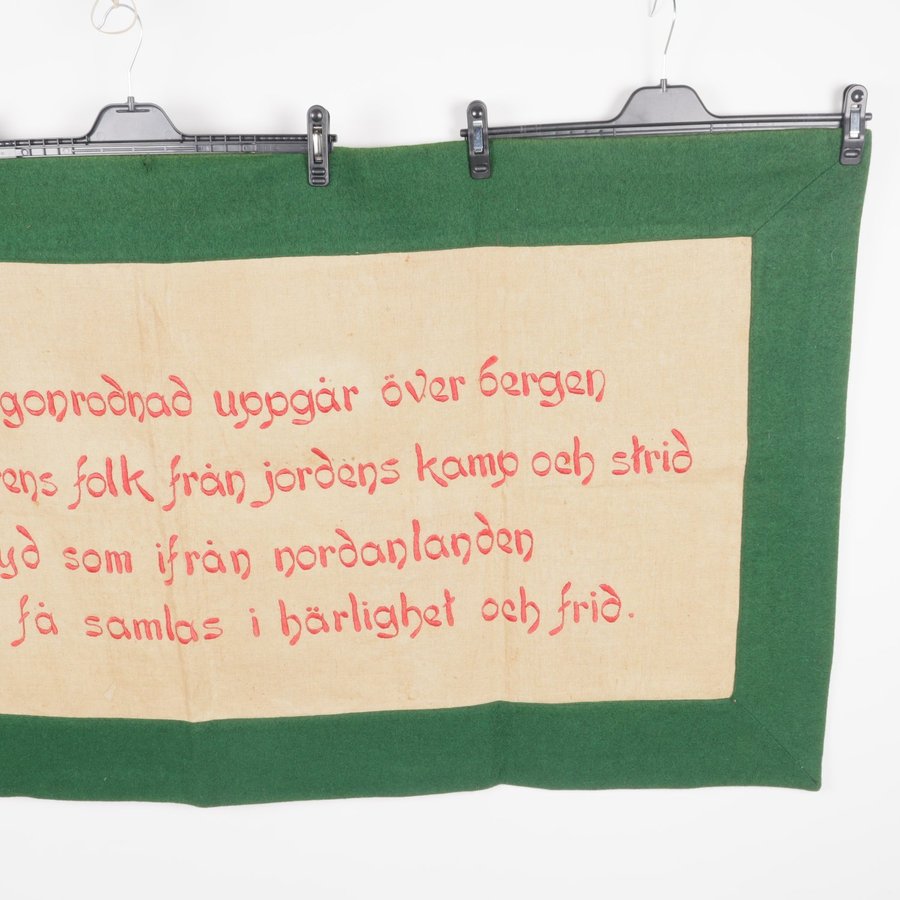 gonrodnad uppgår över bergen
rens folk från jordens kamp och strid
yd som ifrån nordanlanden
få samlas i härlighet och frid.